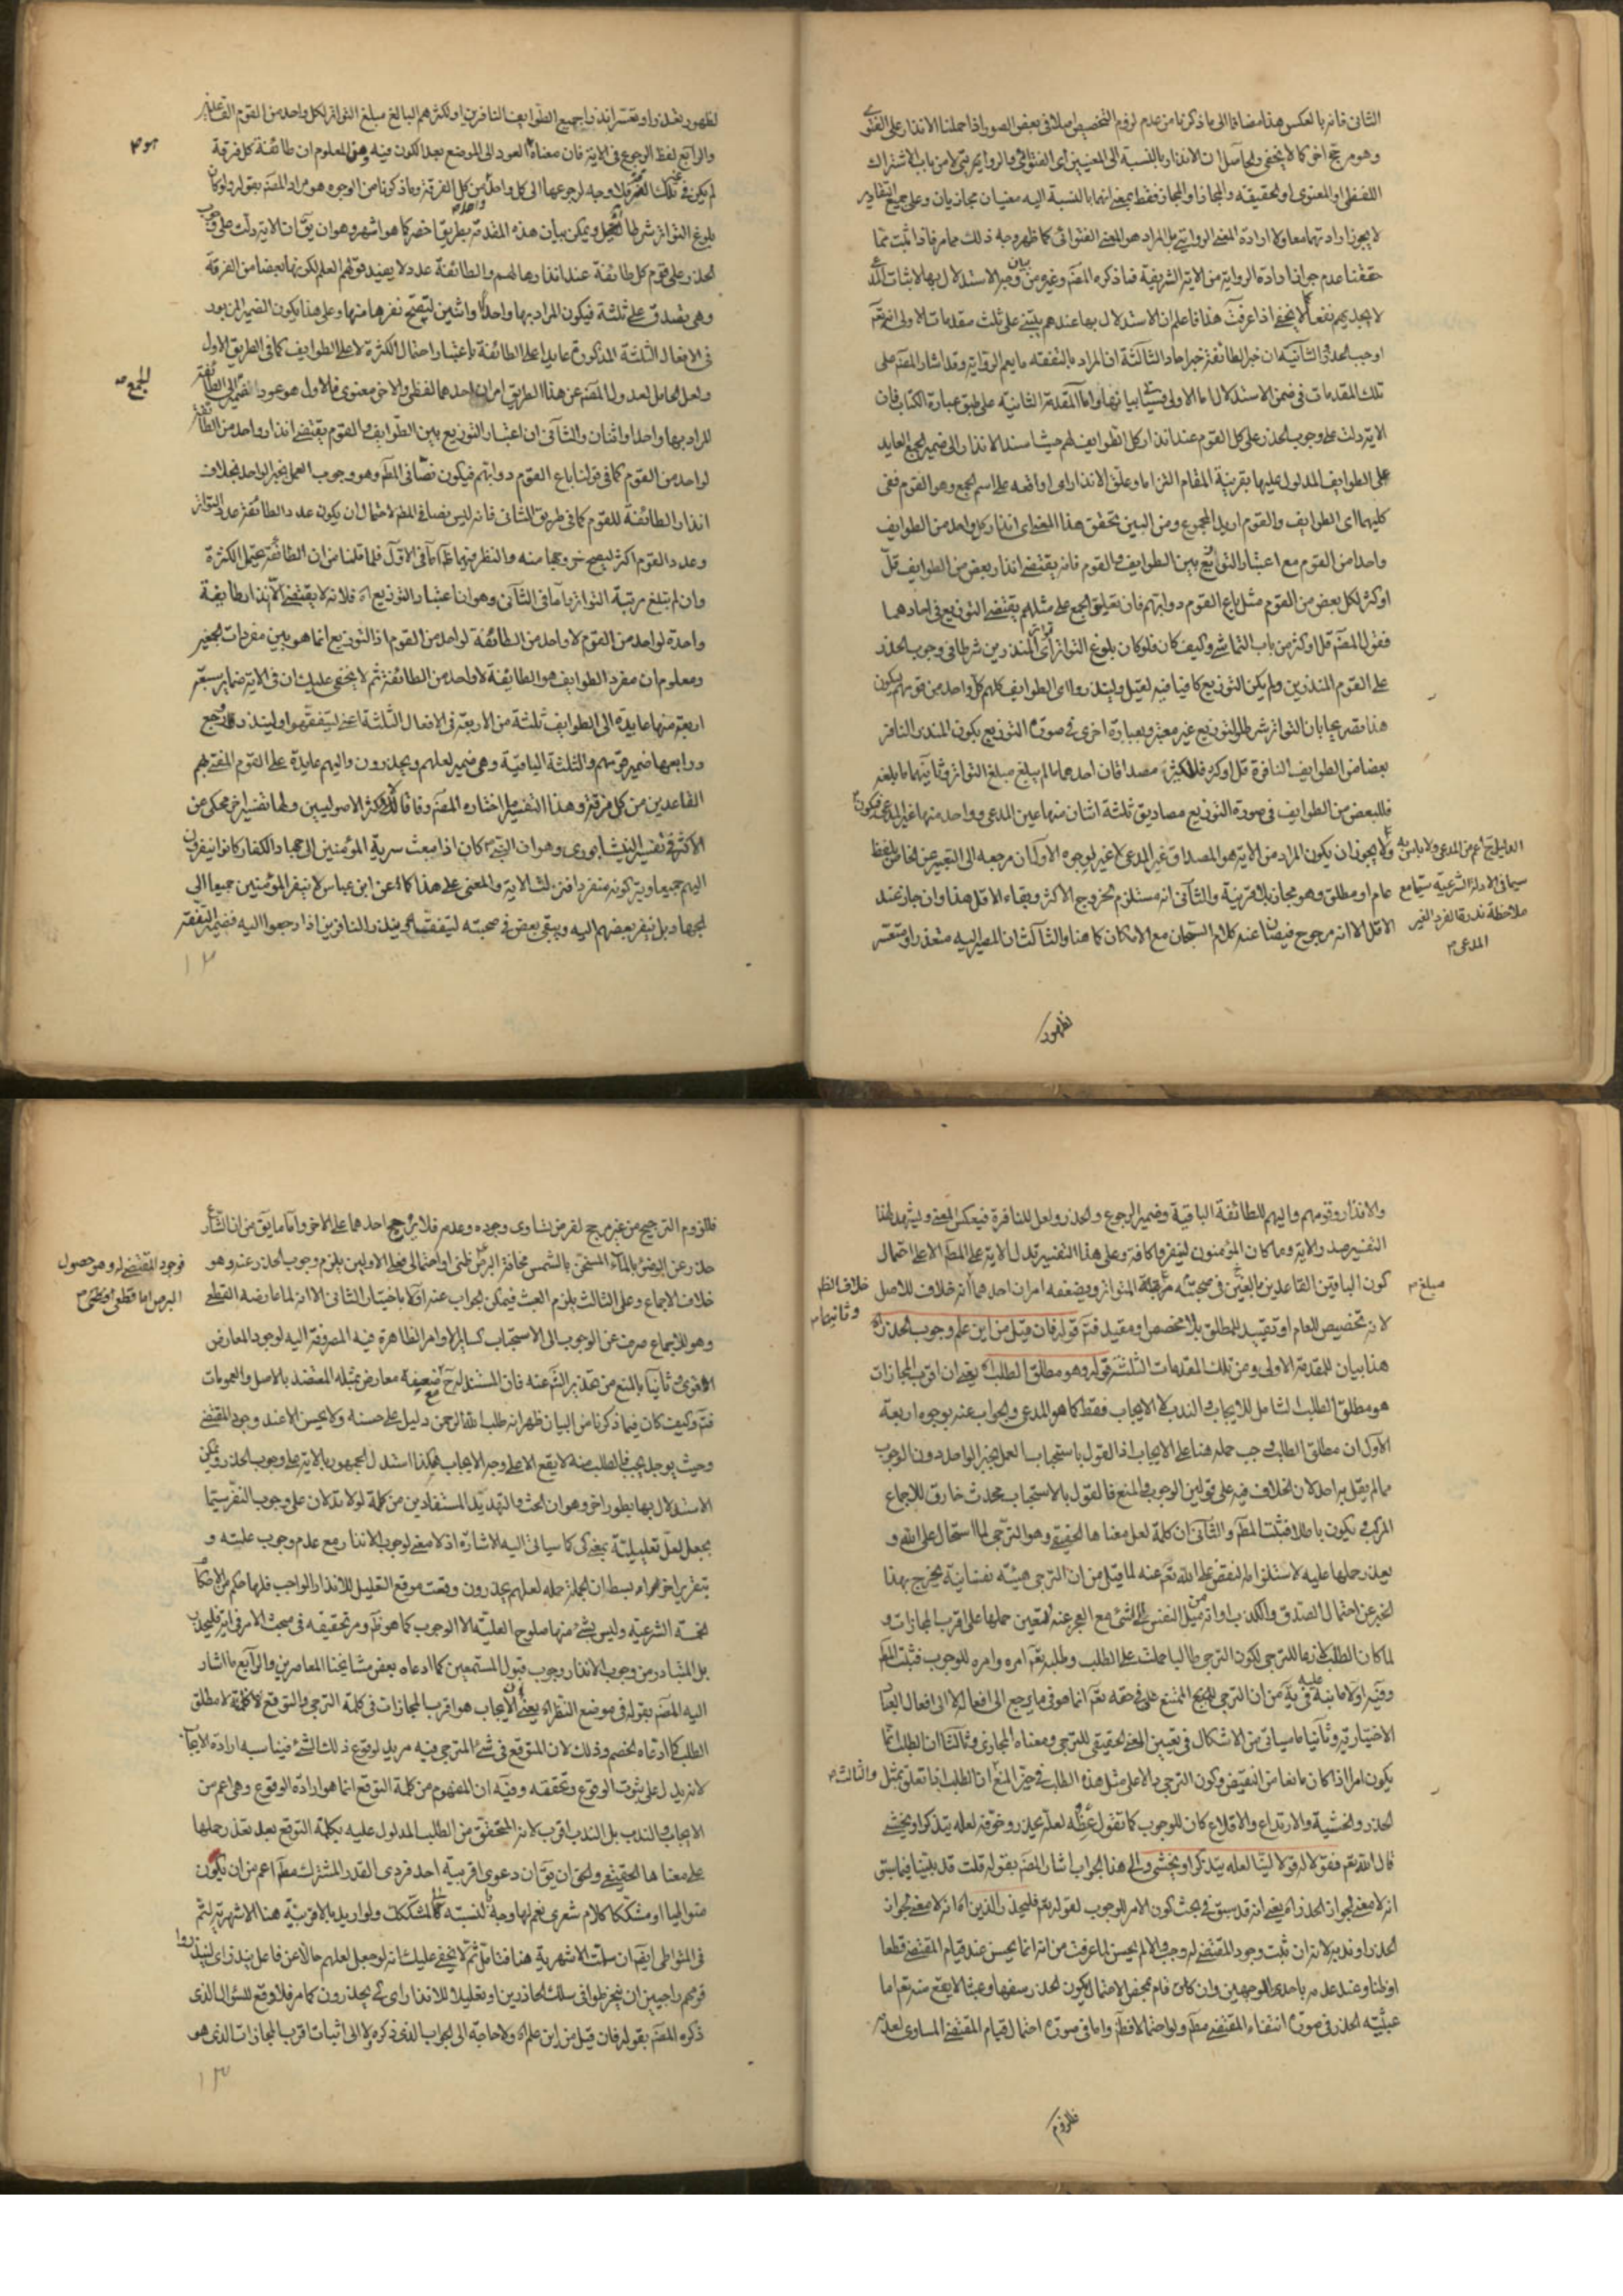 الثانى فانه بالعكس هذا مضافا الى ما ذكرنا من عدم لزوم التخصيص اصلا فى بعض الصور اذا حملنا الانذار على الفتوى
وهو مرجح اخر كما لا يخفى والحاصل ان الانذار بالنسبة الى المعنيين اى الفتوائى والروايتى لا من باب الاشتراك
اللفظى او المعنوى او الحقيقة والمجاز او المجاز فقط بمعنى انهما بالنسبة اليه معنيان مجازيان وعلى جميع التقادير
لا يجوز ارادتهما معا ولا ارادة المعنى الروايتى بل المراد هو المعنى الفتوائى كما ظهر وجه ذلك مما مر فاذا ثبت بما
حققنا عدم جواز ارادة الرواية من الاية الشريفة فما ذكره المصنم وغيره من بيان وجه الاستدلال بها لاثبات المدعى
لا يجديهم نفعا كما لا يخفى اذا عرفت هذا فاعلم ان الاستدلال بها عندهم يبتنى على ثلث مقدمات الاولى انه تعم
اوجب الحذر والثانية ان خبر الطائفة خبر احاد والثالثة ان المراد بالتفقه ما يعم الرواية وقد اشار المصنم على
تلك المقدمات فى ضمن الاستدلال اما الاولى فسياتى بيانها واما المقدمة الثانية على طبق عبارة الكتاب فان
الاية دلت على وجوب الحذر على كل القوم عند انذار كل الطوايف لهم حيث اسند الانذار الى ضمير الجمع العايد
على الطوايف المدلول عليها بقرينة المقام التزاما وعلق الانذار اى اوقعه على اسم الجمع وهو القوم ففى
كليهما اى الطوايف والقوم اريد المجموع ومن البين تحقق هذا المعنى اى انذار كل واحد من الطوايف
واحدا من القوم مع اعتبار التوزيع بين الطوايف والقوم فانه يقتضى انذار بعض من الطوايف قل
او كثر لكل بعض من القوم مثل باع القوم دوابهم فان تعليق الجمع على مثله يقتضى التوزيع فى احادهما
فقول المصنم قل او كثر من باب التماشى وكيف كان فلو كان بلوغ التواتر اى تواتر المنذرين شرطا فى وجوب الحذر
على القوم المنذرين ولم يكن التوزيع كافيا فيه لقيل ولينذروا اى الطوايف كلهم كل واحد من قومهم فيكون
هذا مصرحا بان التواتر شرط والتوزيع غير معتبر وبعبارة اخرى فى صورة التوزيع يكون المنذر النافر
بعضا من الطوايف النافرة قل او كثر فللكثير مصداقان احدهما ما لم يبلغ مبلغ التواتر وثانيهما ما بلغه
فللبعض من الطوايف فى صورة التوزيع مصاديق ثلثة اثنان منها عين المدعى وواحد منها غير المدعى فيكون
الدليل اعم من المدعى ولا باس به
سيما فى الادلة الشرعية سيما مع
ملاحظة ندرة الفرد الغير
المدعى
ولا يجوز ان يكون المراد من الاية هو المصداق غير المدعى لا غير لوجوه الاول ان مرجعه الى التعبير عن الخاص بلفظ
عام او مطلق وهو مجاز بلا قرينة والثانى انه مستلزم لخروج الاكثر وبقاء الاقل هذا وان جاز عند
الاقل الا انه مرجوح فيصان عنه كلام السبحان مع الامكان كما هنا والثالث ان المصير اليه متعذر او متعسر
لظهور
لظهور تعذر او تعسر انذار جميع الطوايف النافرين او لكثرهم البالغ مبلغ التواتر لكل واحد من القوم القاعدين
والرابع لفظ الرجوع فى الاية فان معناه العود الى الموضع بعد الكون فيه ومن المعلوم ان طائفة كل فرقة
لم يكن فى تلك الفرقة فلا وجه لرجوعها الى كل واحد من كل الفرقة وما ذكرنا من الوجوه هو مراد المصنم بقوله ولو كان
بلوغ التواتر شرطا لقيل ويمكن بيان هذه المقدمة بطريق اخصر كما هو اشهر وهو ان يقال ان الاية دلت على وجوب
الحذر على قوم كل طائفة عند انذارها لهم والطائفة عدد لا يفيد قولهم العلم لكونها بعضا من الفرقة
وهى يصدق على ثلثة فيكون المراد بها واحدا او اثنين ليصح نفرها منها وعلى هذا يكون الضمير البارز
فى الافعال الثلثة المذكورة عايدا على الطائفة باعتبار احتمال الكثرة لا على الطوايف كما فى الطريق الاول
ولعل الحامل لعدول المصنم عن هذا الطريق امران احدهما لفظى والاخر معنوى فالاول هو عود الضمير الى الطائفة
الجمع
المراد بها واحد او اثنان والثانى ان اعتبار التوزيع بين الطوايف والقوم يقتضى انذار واحد من الطائفة
لواحد من القوم كما فى قولنا باع القوم دوابهم فيكون نصا فى المط وهو وجوب العمل بخبر الواحد بخلاف
انذار الطائفة للقوم كما فى طريق الثانى فانه ليس نصا فى المط لاحتمال ان يكون عدد الطائفة عدد التواتر
وعدد القوم اكثر ليصح خروجها منه والنظر فيهما ظاهر اما فى الاول فلما قلنا من ان الطائفة تحتمل الكثرة
وان لم تبلغ مرتبة التواتر واما فى الثانى وهو ان اعتبار التوزيع اه فلانه لا يقتضى الا انذار طائفة
واحدة لواحد من القوم لا واحد من الطائفة لواحد من القوم اذ التوزيع انما هو بين مفردات الجمعين
ومعلوم ان مفرد الطوايف هو الطايفة لا واحد من الطائفة ثم لا يخفى عليك ان فى الاية ضماير سبعة
اربعة منها عايدة الى الطوايف ثلثة من الاربعة فى الافعال الثلثة اعنى ليتفقهوا ولينذروا ورجع
ورابعها ضمير قومهم والثلثة الباقية وهى ضمير لعلهم ويحذرون واليهم عايدة على القوم المفسر بهم
القاعدين من كل فرقة وهذا التفسير ما اختاره المصنم وفاقا لاكثر الاصوليين ولها تفسير اخر محكى عن
الاكثر فى تفسير النيشابورى وهو ان النبى ص كان اذا بعث سرية المؤمنين الى جهاد الكفار كانوا ينفرون
اليهم جميعا ويتركونه منفردا فنزلت الاية والمعنى على هذا كما عن ابن عباس لا ينفر المؤمنين جميعا الى
الجهاد بل ينفر بعضهم اليه ويبقى بعض فى صحبته ليتفقهوا وينذروا النافرين اذا رجعوا اليه فضمير التفقه
١٢
والانذار وقومهم واليهم للطائفة الباقية وضمير الرجوع والحذر ولعل للنافرة فيعكس المعنى ويشهد لهذا
التفسير صدر الاية وما كان المؤمنون لينفروا كافة وعلى هذا التفسير تدل الاية على المط الا على احتمال
كون الباقين القاعدين بالغين فى صحبته مرتبة التواتر ويضعفه امران احدهما انه خلاف للاصل
مبلغ
خلاف الظ
وثانيهما
لانه تخصيص للعام او تقييد للمطلق بلا مخصص او مقيد فتم قوله فان قيل من اين علم وجوب الحذر اه
هذا بيان للمقدمة الاولى ومن تلك المقدمات الثلثة قوله وهو مطلق الطلب اه يعنى ان اقرب المجازات
هو مطلق الطلب الشامل للايجاب والندب لا الايجاب فقط كما هو المدعى والجواب عنه بوجوه اربعة
الاول ان مطلق الطلب وجب حمله هنا على الايجاب اذ القول باستحباب العمل بخبر الواحد دون الوجوب
مما لم يقل به احد لان الخلاف فيه على قولين الوجوب والمنع فالقول بالاستحباب محدث خارق للاجماع
المركب ويكون باطلا فثبت المط والثانى ان كلمة لعل معناها الحقيقى وهو الترجى لما استحال على الله و
يعذر حملها عليه لاستلزامه النقض على الله تعم عنه لما قيل من ان الترجى هيئة نفسانية يخرج بهذا
الخبر عن احتمال الصدق والكذب او انه ميل النفس الى الشئ مع العجز عنه فتعين حملها على اقرب المجازات و
لما كان الطلب لازما للترجى لكون الترجى طالبا حملت على الطلب وطلبه تعم امره وامره للوجوب فثبت المط
وفيه اولا ما نبه عليه من ان الترجى المقبح الممتنع على فى حقه تعم انما هو فى ما يرجع الى افعاله لا الى افعال العباد
الاختيارية وثانيا ما سياتى من الاشكال فى تعيين المعنى الحقيقى للترجى ومعناه المجازى وثالثا ان الطلب انما
يكون امرا اذا كان مانعا من النقيض وكون الترجى دالا على مثل هذه الطلب فى حيز المنع ان الطلب اذا تعلق بمثل
والثالث
الحذر والخشية والارتداع والاقلاع كان للوجوب كما تقول عظه لعله يحذر وخوفه لعله يتذكر او يخشى
قال الله تعم فقولا له قولا لينا لعله يتذكر او يخشى والى هذا الجواب اشار المصنم بقوله قلت قد بينا فيما سبق
انه لا معنى لجواز الحذر اه يعنى انه قد سبق فى بحث كون الامر للوجوب لقوله تعم فليحذر الذين اه انه لا معنى لجواز
الحذر او ندبه لانه ان ثبت وجود المقتضى له وجب والا لم يحسن لما عرفت من انه انما يحسن عند قيام المقتضى قطعا
او ظنا وعند عدمه باحدى الوجهين وان كان قام بمحض الاحتمال يكون الحذر سفها وعبثا لا يقع منه تعم اما
عبثية الحذر فى صورة انتفاء المقتضى مط ولو احتمالا فظ واما فى صورة احتمال قيام المقتضى المساوى لعدمه
فللزوم
فللزوم الترجيح من غير مرجح لفرض تساوى وجوده وعدمه فلا يرجح احدهما على الاخر واما ما يق من ان الشارع
حذر عن الوضوء بالماء المسخن بالشمس مخافة البرص ظنى او احتمالى فعلى الاولين يلزم وجوب الحذر عنه وهو
فوجود المقتضى له وهو حصول
البرص اما قطعى او ظنى
خلاف الاجماع وعلى الثالث يلزم العبث فيمكن الجواب عنه اولا باختيار الثانى الا انه لما عارضه القطعى
وهو الاجماع صرف عن الوجوب الى الاستحباب كساير الاوامر الظاهرة فيه المصروفة اليه لوجود المعارض
الاقوى وثانيا بالمنع من تحذير الشم عنه فان المستند له خ ضعيفة معارض بمثله المعتضد بالاصل والعمومات
فتم وكيف كان فيما ذكرنا من البيان ظهر انه طلب الله الرحمن دليل على حسنه ولا يحسن الا عند وجود المقتضى
وحيث يوجد يجب فالطلب منه لا يقع الا على وجه الايجاب هكذا استدل الجمهور بالاية على وجوب الحذر ويمكن
الاستدلال بها بطور اخر وهو ان الحث والتهديد المستفادين من كلمة لولا تدلان على وجوب النفر سيما
بجعل لعل تعليلية بمعنى كى كما سياتى اليه الاشارة اذ لا معنى لوجوب الانذار مع عدم وجوب علته و
بتقرير اخر اه ابسط ان الجملة جملة لعلهم يحذرون وقعت موقع التعليل للانذار الواجب فلها حكم من الاحكام
الخمسة الشرعية وليس شئ منها صلوح العلية الا الوجوب كما هو ظ ومر تحقيقه فى مبحث الامر فى اية فليحذر
بل المتبادر من وجوب الانذار وجوب قبول المستمعين كما ادعاه بعض مشايخنا المعاصرين والرابع ما اشار
اليه المصنم بقوله فى موضع النظر اه يعنى ان الايجاب هو اقرب المجازات فى كلمة الترجى والتوقع لا كلمة لا مطلق
الطلب كما ادعاه الخصم وذلك لان المتوقع فى شئ المترجى فيه مريد لوقوع ذلك الشئ فيناسبه ارادة الايجاب
لانه يدل على ثبوت الوقوع وتحققه وفيه ان المفهوم من كلمة التوقع انما هو ارادة الوقوع وهى اعم من
الايجاب والندب بل الندب اقرب لانه المتحقق من الطلب المدلول عليه بكلمة التوقع بعد تعذر حملها
على معناها الحقيقى ولحق ان يق ان دعوى اقربية احد فردى القدر المشترك مط اعم من ان تكون
متواطيا او مشككا كلام شعرى نعم لها وجه بالنسبة الى المشكك ولو اريد بالاقربية هنا الاشهرية لتم
فى المتواطى ايضا ان سلمت الاشهرية هنا فتامل ثم لا يخفى عليك انه لو جعل لعلهم حالا عن فاعل ينذر اى لينذروا
قومهم راجيين ان ينخرطوا فى سلك الحاذرين او تعليلا للانذار اى كى يحذرون كما مر فلا وقع للسؤال الذى
ذكره المصنم بقوله فان قيل من اين علم اه ولا حاجة الى الجواب الذى ذكره ولا الى اثبات اقرب المجازات الذى هو
١٣